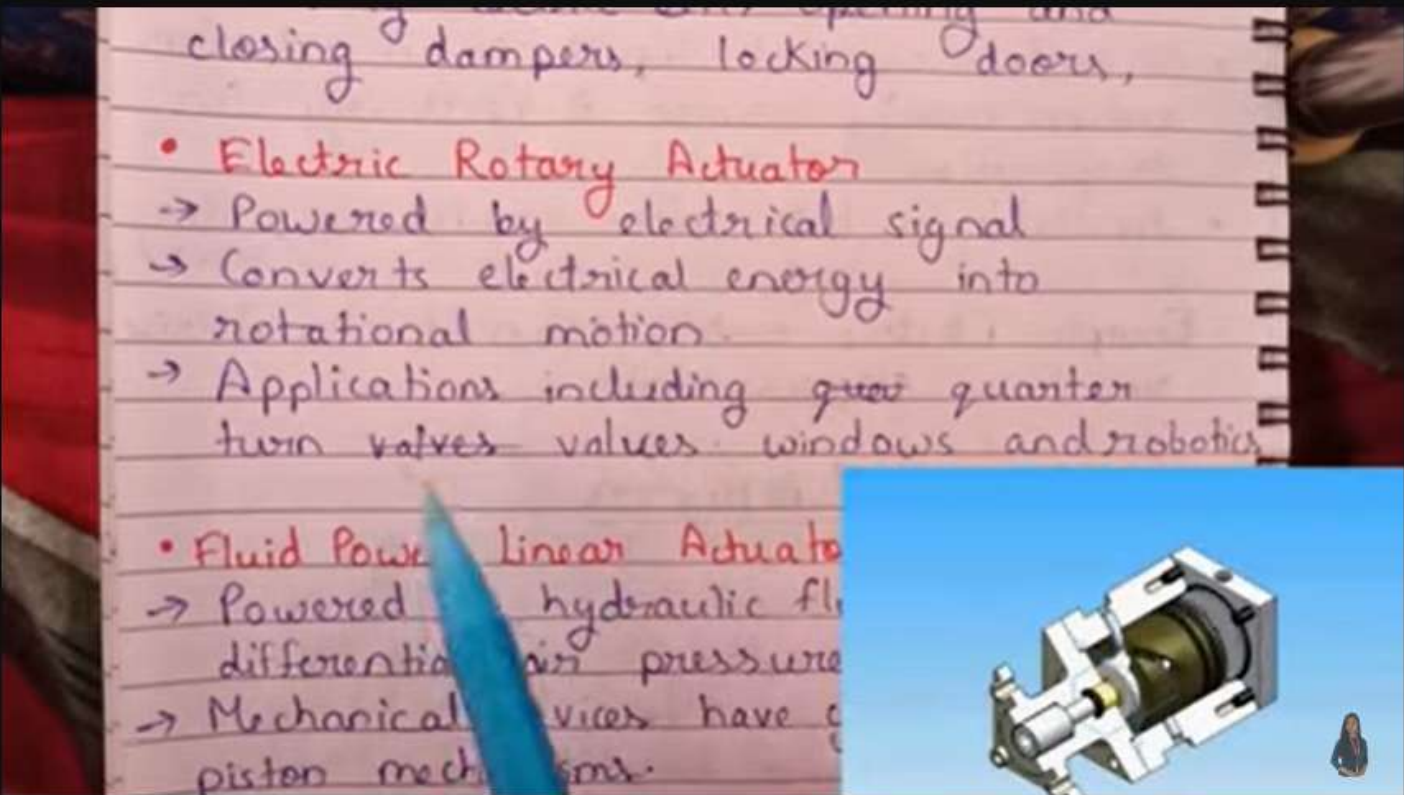 opening and
closing dampers, locking doors,
• Electric Rotary Actuator
→ Powered by electrical signal
→ Converts electrical energy into
rotational motion.
→ Applications including quarter
turn valves values windows and robotics
• Fluid Linear
→ Powered hydraulic
pressure
→ Mechanical have
piston